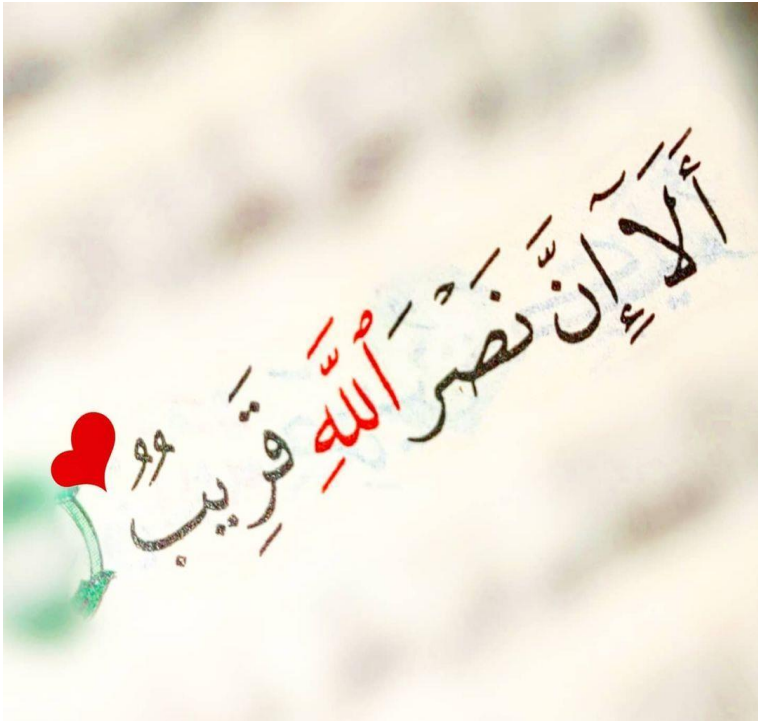 أَلَآ إِنَّ نَصۡرَ ٱللَّهِ قَرِيبٞ